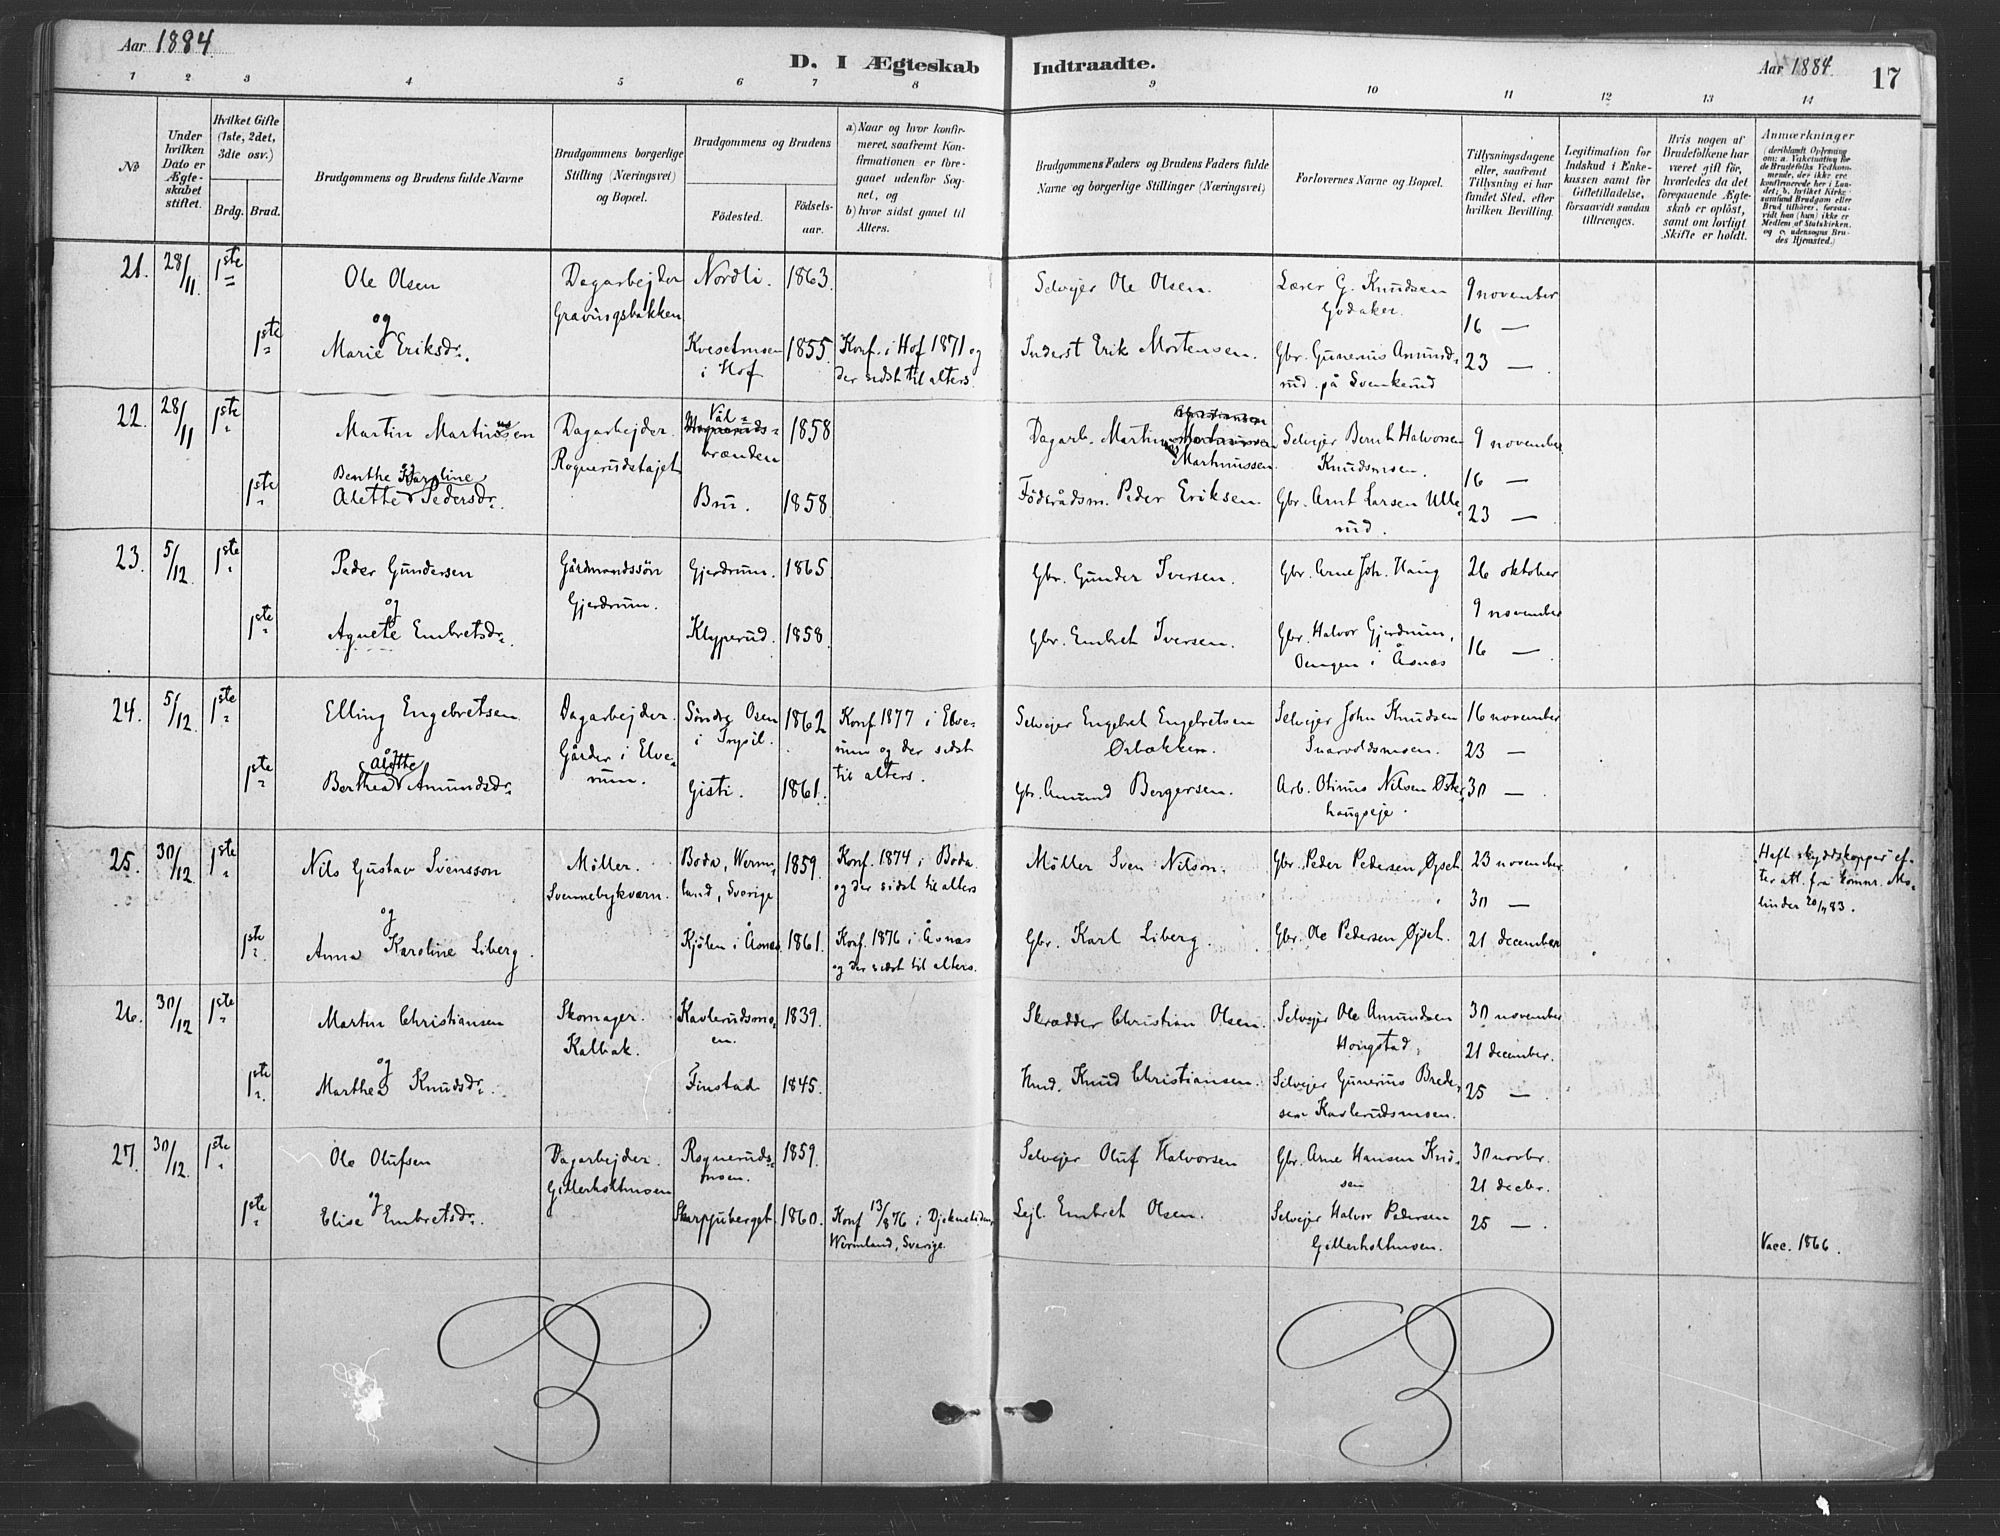 Aar 1884.
D. I Ægteskab Indtraadte.
Aar 1884. 17
1 2 3 4 5 6 7 8 9 10 11 12 13 14
No
Under hvilken Dato er Ægteskabet stiftet.
Hvilket Gifte (1ste, 2det, 3die osv.)
Brdg. Brud.
Brudgommens og Brudens fulde Navne
Brudgommens borgerlige Stilling (Næringsvei) og Bopæl.
Brudgommens og Brudens
Fødested. Fødselsaar.
a) Naar og hvor konfirmeret, saafremt Konfirmationen er foregaaet udenfor Sognet, og
b) hvor sidst gaaet til Alters.
Brudgommens Faders og Brudens Faders fulde Navne og borgerlige Stillinger (Næringsvei)
Forlovernes Navne og Bopæl.
Tillysningsdagene eller, saafremt Tillysning ei har fundet Sted, efter hvilken Bevilling.
Legitimation for Indskud i Enkekassen samt for Giftetilladelse, forsaavidt saadan tiltrænges.
Hvis nogen af Brudefolkene har været gift før, hvorledes da det foregaaende Ægteskab er opløst, samt om lovligt Skifte er holdt.
Anmærkninger (deriblandt Oplysning om: a. Vakcination for de Brudefolks Vedkommende, der ikke ere konfirmerede her i Landet; b. hvilket Kirkesamfund Brudgom eller Brud tilhører, forsaavidt han (hun) ikke er Medlem af Statskirken, og c. udensogns Brudes Hjemsted.)
21. 28/11. 1ste Ole Olsen Dagarbejder Nordli. 1863. Selvejer Ole Olsen. Lærer G. Knudsen 9 november
og Gravingsbakken Godaker. 16 —
1ste Marie Eriksdr. Kvesetmoen 1855. Konf. i Hof 1871 og Inderst Erik Mortensen. Gbr. Gunerius Amund= 23 —
i Hof der sidst til alters. rud på Svenkerud
22. 28/11 1ste Martin Martinussen Dagarbejder. Vål= 1858 Dagarb. Martinus Selvejer Bernt Halvorsen 9 november
Rognerudstajet brænden Martinussen. Knudsmoen. 16 —
Benthe Karoline
og
1ste Alette Pedersdr. Bru. 1858. Føderådsm. Peder Eriksen. Gbr. Arnt Larsen Ulle= 23 —
rud.
23. 5/12. 1ste Peder Gundersen Gårdmandssøn Gjerdrum. 1865 Gbr. Gunder Iversen. Gbr. Arne Joh. Haug 26 oktober
og Gjerdrum. 9 november
1ste Agnete Embretsdr. Klyperud. 1858. Gbr. Embret Iversen. Gbr. Halvor Gjerdrum, 16 —
Oengen i Åsnæs
24. 5/12. 1ste Elling Engebretsen Dagarbejder. Søndre Osen 1862 Konf. 1877 i Elve= Selvejer Engebret Engebretsen Selvejer John Knudsen 16 november
Gårder i Elve= i Trysil. rum og der sidst Ørbækken. Snarvoldsmoen. 23 —
og
Alette
1ste Berthea Amundsdr. rum. Gisti. 1861. til alters. Gbr. Amund Bergersen. Arb. Otinus Nilsen Øster= 30 —
haugseje.
25. 30/12. 1ste Nils Gustav Svensson Møller. Boda, Werm= 1859. Konf. 1874 i Boda Møller Sven Nilson. Gbr. Peder Pedersen Øiset. 23 november
Svennebykværn. land, Sverige og der sidst til alters 30 —
Haft skyddskoppor ef=
ter att. frå komnr. Mo=
linder 20/1 83.
og
1ste Anna Karoline Liberg. Kjølen i Åsnæs. 1861. Konf. 1876 i Åsnæs Gbr. Karl Liberg. Gbr. Ole Pedersen Øiset. 21 december
og der sidst til alters.
26. 30/12 1ste Martin Christiansen Skomager. Kavlerudsmo= 1839. Skrædder Christian Olsen. Selvejer Ole Amundsen 30 november
Kalbak. en. Hongstad, 21 december.
og
1ste Marthea Knudsdr. Finstad 1845. Knud Christiansen. Selvejer Gunerius Brede= 25 —
sen Kavlerudsmoen.
27. 30/12. 1ste Ole Olufsen Dagarbejder. Rogneruds= 1859. Selvejer Oluf Halvorsen Gbr. Arne Hansen Knu= 30 novbr.
Gillerholtmoen moen. sen 21 decbr.
og
1ste Elise Embretsdr. Skarpjuberget. 1860. Konf 13/8 76 i Lejl. Embret Olsen. Selvejer Halvor Pedersen 25 —
Wermland, Sverige. Gillerholtmoen. Vacc. 1866.